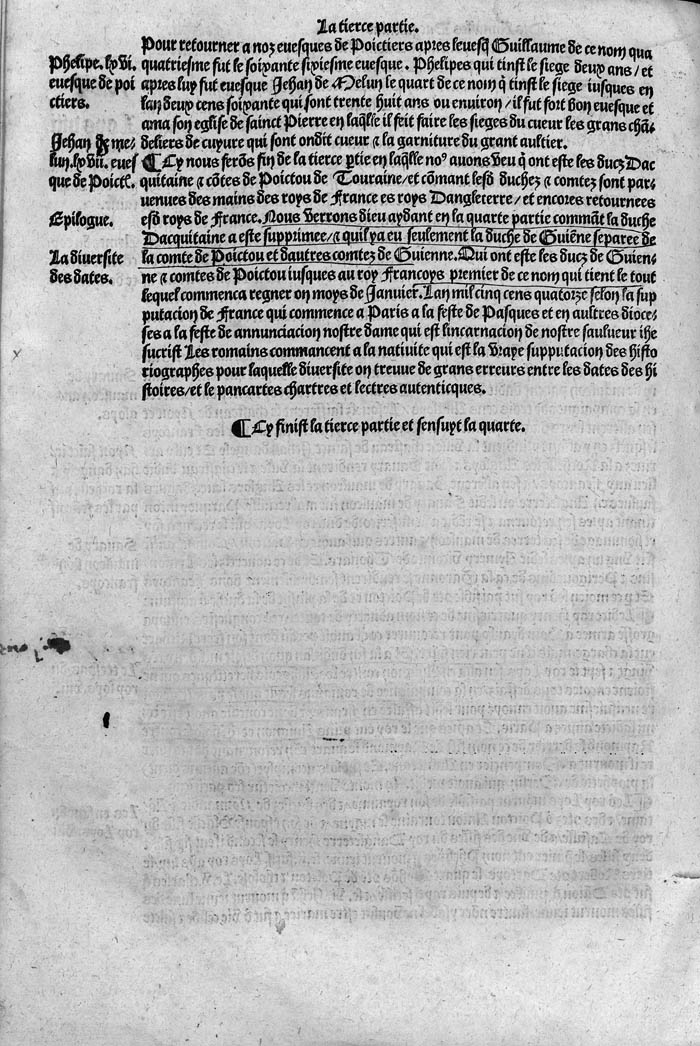 La tierce partie.
Pour retourner a noz euesques de Poictiers apres leuesq̃ Guillaume de ce nom qua
Phelipe. lxvi. euesque de poi ctiers.
quatriesme fut le soixante sixiesme euesque. Phelipes qui tinst le siege deux ans/ et
apres luy fut euesque Jehan de Melun le quart de ce nom q̃ tinst le siege iusques en
lan deux cens soixante qui sont trente huit ans ou enuiron/ il fut fort bon euesque et
ama son eglise de sainct Pierre en laq̃lle il feit faire les sieges du cueur les grans chã-
Jehan de me- lun. lxvii. eues que de Poictĩ.
deliers de cuyure qui sont ondit cueur ⁊ la garniture du grant aultier.
¶ Cy nous ferõs fin de la tierce ptie en laq̃lle noꝰ auons veu q̃ ont este les ducz Dac
quitaine ⁊ cõtes de Poictou de Touraine/et cõmant lesd̃ duchez ⁊ comtez sont par-
uenues des mains des roys de France es roys Dangleterre/ et encores retournees
Epilogue.
esd̃ roys de France. Nous verrons dieu aydant en la quarte partie commãt la duche
Dacquitaine a este supprimee/⁊ quil ya eu seulement la duche de Guiẽne separee de
La diuersite des dates.
la comte de Poictou et dautres comtez de Guienne. Qui ont este les ducz de Guien-
ne ⁊ comtes de Poictou iusques au roy Francoys premier de ce nom qui tient le tout
lequel commenca regner on moys de Januier. Lan mil cinq cens quatorze selon la sup
putacion de France qui commence a Paris a la feste de Pasques et en aultres dioce-
ses a la feste de annunciacion nostre dame qui est lincarnacion de nostre saulueur ihe
sucrist Les romains commancent a la natiuite qui est la vraye supputacion des histo
riographes pour laquelle diuersite on treuue de grans erreurs entre les dates des hi
stoires/et le pancartes chartres et lectres autenticques.
¶ Cy finist la tierce partie et sensuyt la quarte.